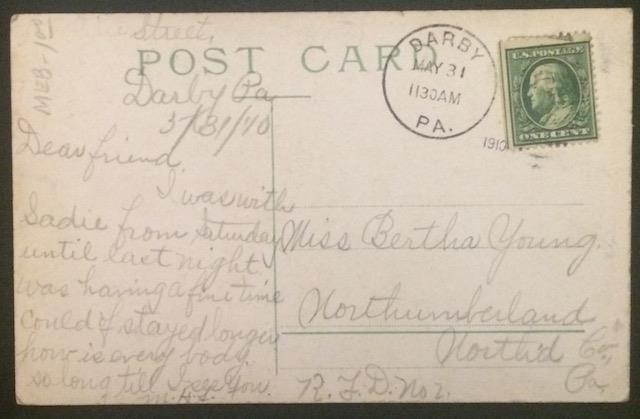 Street,
POST CARD
Darby Pa
5/31/10
Dear friend
I was with
Sadie from Saturday
until last night.
was having a fine time
could of stayed longer
how is every body.
so long till I see you.
M.H.S.
MEB-100
DARBY
MAY 31
1130AM
PA.
1910
U.S. POSTAGE
ONE CENT
Miss Bertha Young.
Northumberland
North'd Co,
Pa.
R.F.D. No 2.